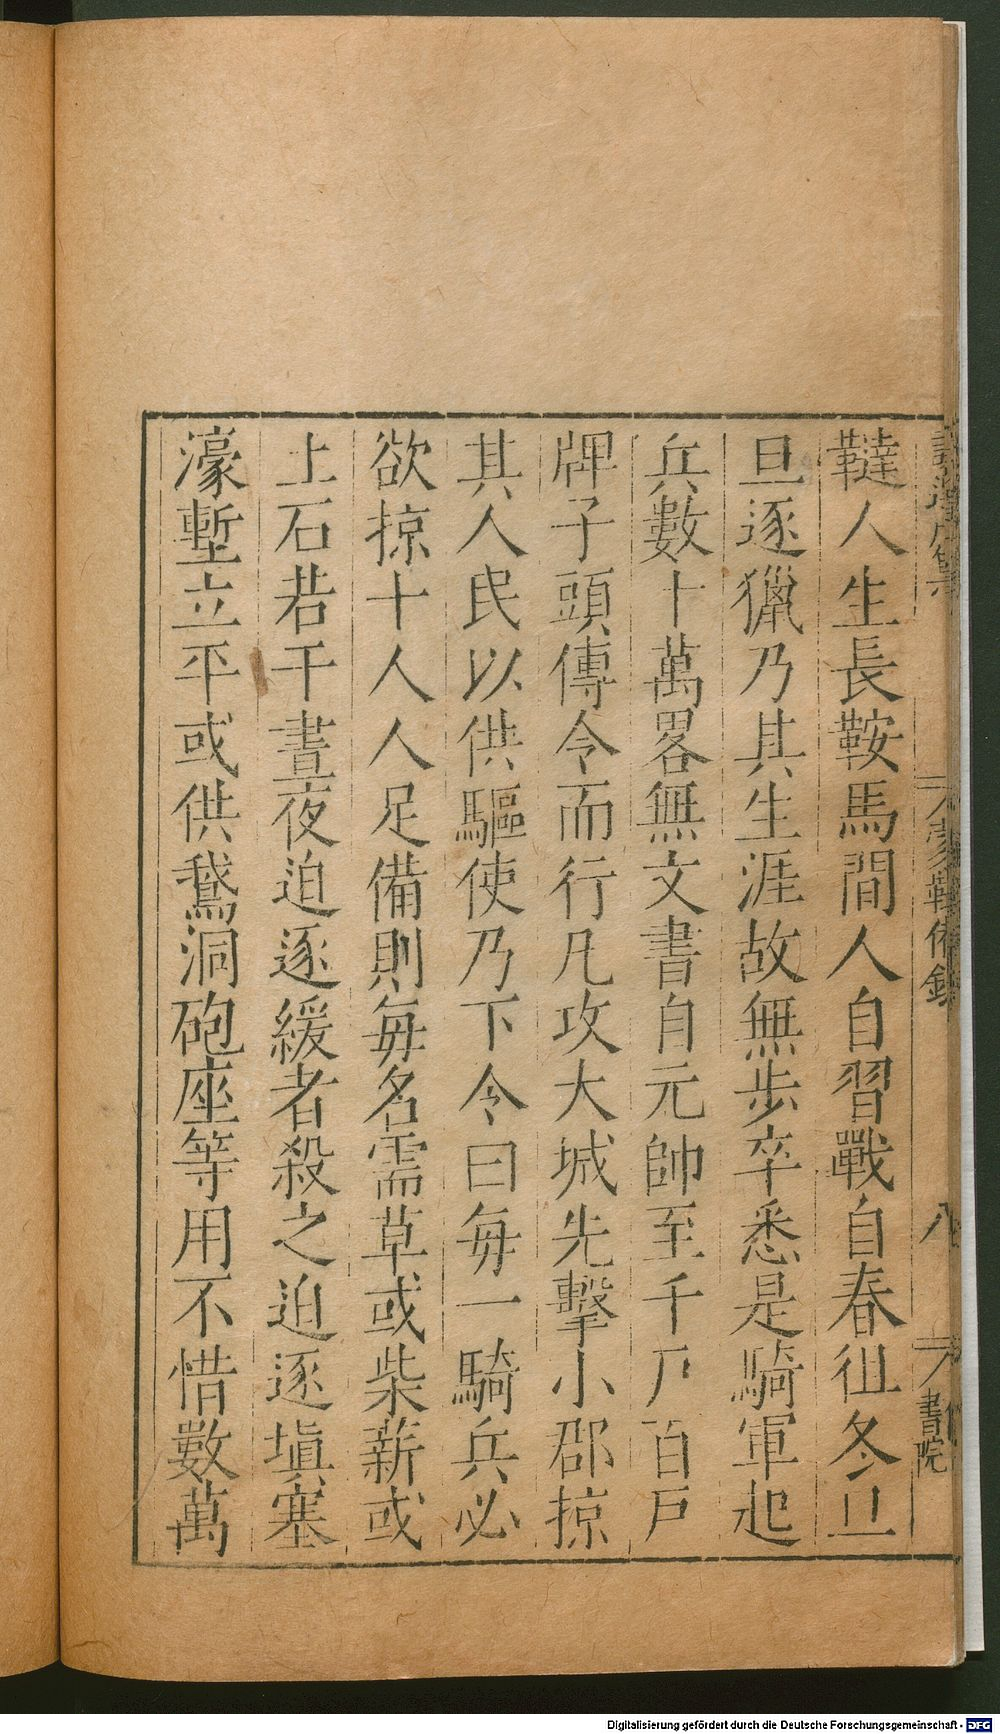 韃人生長鞍馬間人自習戰自春徂冬旦
旦逐獵乃其生涯故無步卒悉是騎軍起
兵數十萬畧無文書自元帥至千戶百戶
牌子頭傳令而行凡攻大城先擊小郡掠
其人民以供驅使乃下令曰每一騎兵必
欲掠十人人足備則每名需草或柴薪或
土石若干晝夜迫逐緩者殺之迫逐塡塞
濠塹立平或供鵞洞砲座等用不惜數萬
八
書院
Digitalisierung gefördert durch die Deutsche Forschungsgemeinschaft - DFG